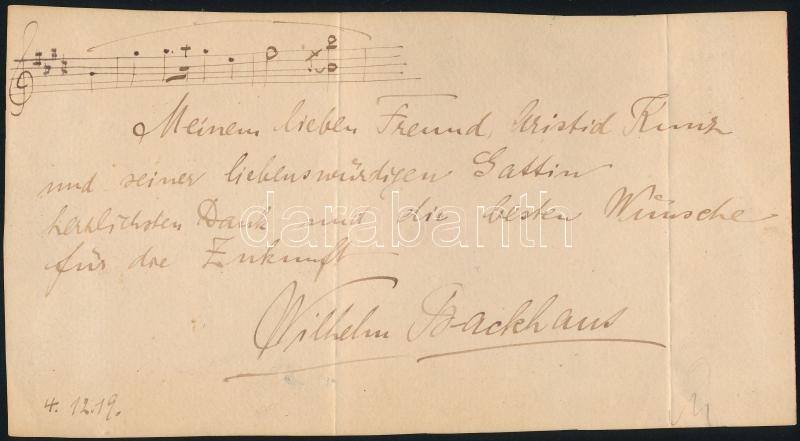 Meinem lieben Freund, Aristid Kunz
und seiner liebenswürdigen Gattin
herzlichsten Dank und die besten Wünsche
für die Zukunft
Wilhelm Backhaus
4. 12. 19.
darabanth